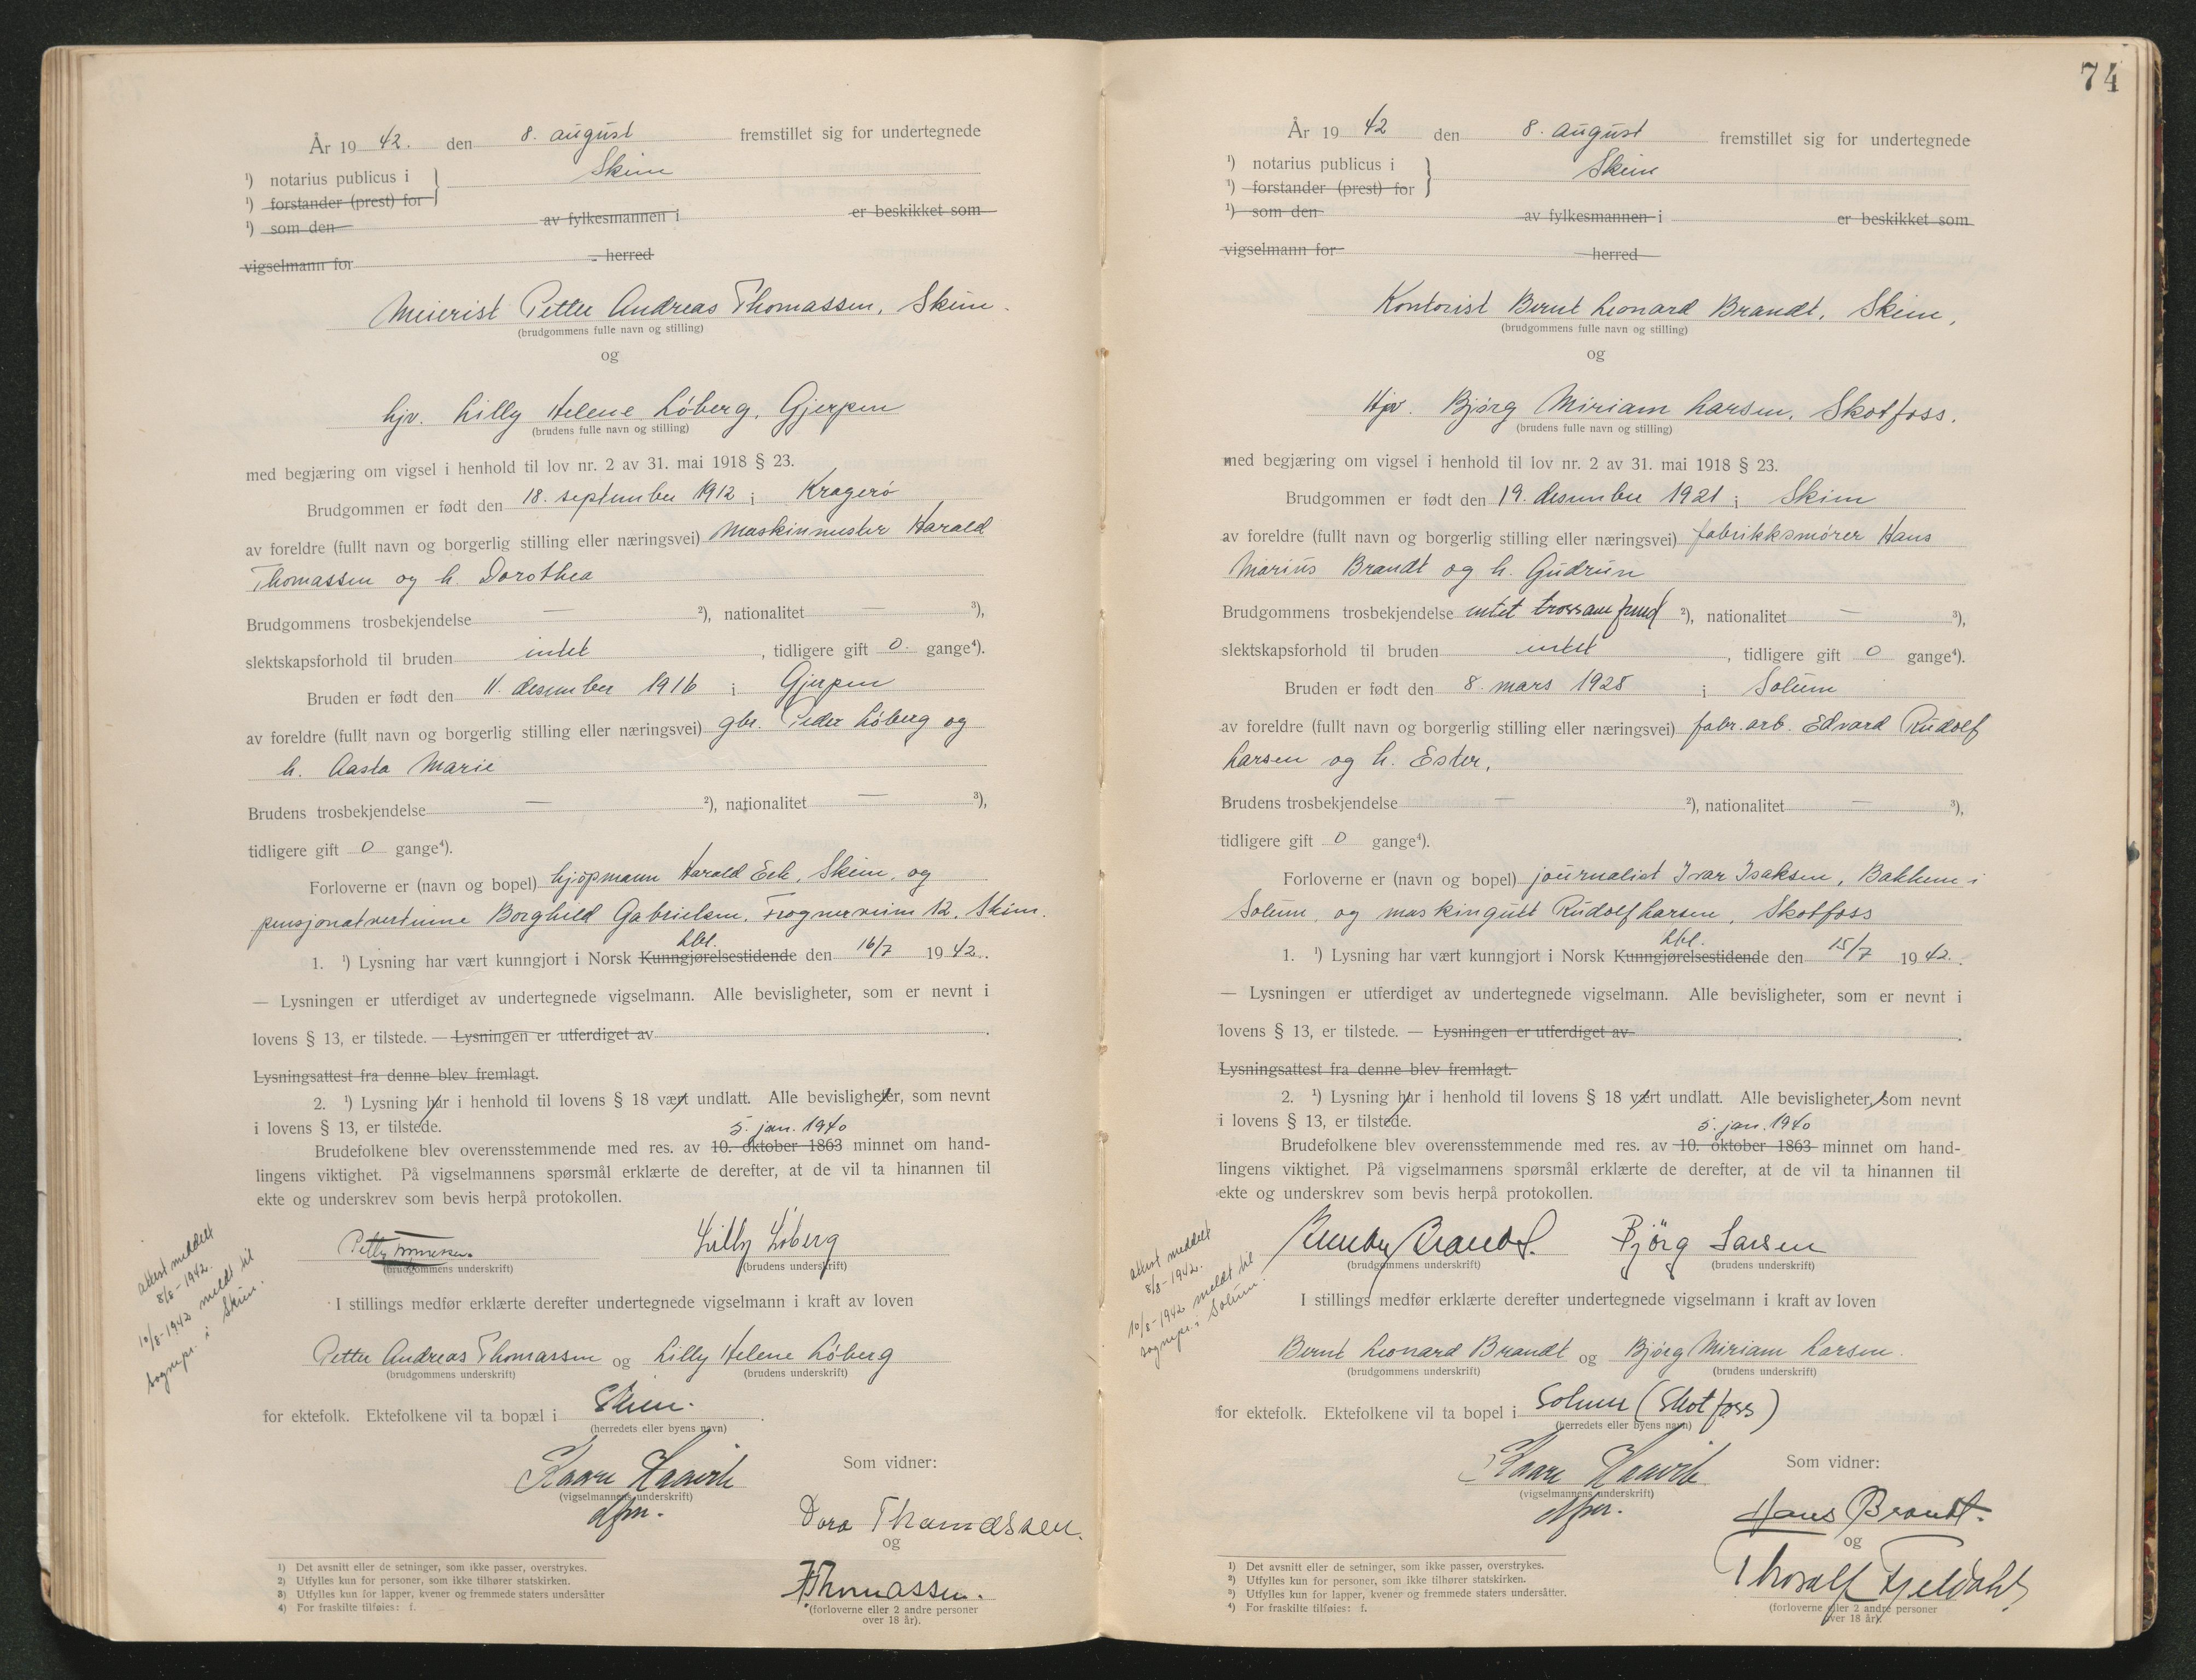 År 19 42. den 8. august fremstillet sig for undertegnede
¹) notarius publicus i } Skien
¹) forstander (prest) for
¹) som den av fylkesmannen i er beskikket som
vigselmann for herred
Meierist Petter Andreas Thomassen, Skien.
(brudgommens fulle navn og stilling)
og
hjv. Lilly Helene Løberg, Gjerpen
(brudens fulle navn og stilling)
med begjæring om vigsel i henhold til lov nr. 2 av 31. mai 1918 § 23.
Brudgommen er født den 18. september 1912 i Kragerø
av foreldre (fullt navn og borgerlig stilling eller næringsvei) maskinmester Harald
Thomassen og h. Dorothea
Brudgommens trosbekjendelse — ²), nationalitet — ³),
slektskapsforhold til bruden intet, tidligere gift 0. gange⁴).
Bruden er født den 11. desember 1916 i Gjerpen
av foreldre (fullt navn og borgerlig stilling eller næringsvei) gbr. Peder Løberg og
h. Aasta Marie
Brudens trosbekjendelse — ²), nationalitet — ³),
tidligere gift 0 gange⁴).
Forloverne er (navn og bopel) kjøpmann Harald Eek, Skien, og
pensjonatvertinne Borghild Gabrielsen, Frognerveien 12, Skien.
hbl.
1. ¹) Lysning har vært kunngjort i Norsk Kunngjørelsestidende den 16/7 1942.
— Lysningen er utferdiget av undertegnede vigselmann. Alle bevisligheter, som er nevnt i
lovens § 13, er tilstede. — Lysningen er utferdiget av
Lysningsattest fra denne blev fremlagt.
2. ¹) Lysning har i henhold til lovens § 18 vært undlatt. Alle bevisligheter, som nevnt
i lovens § 13, er tilstede. 5. jan. 1940
Brudefolkene blev overensstemmende med res. av 10. oktober 1863 minnet om hand-
lingens viktighet. På vigselmannens spørsmål erklærte de derefter, at de vil ta hinannen til
ekte og underskrev som bevis herpå protokollen.
attest meddelt
8/8-1942.
10/8-1942 meldt til
sognepr. i Skien.
Lilly Løberg
(brudgommens underskrift) (brudens underskrift)
I stillings medfør erklærte derefter undertegnede vigselmann i kraft av loven
Petter Andreas Thomassen og Lilly Helene Løberg
(brudgommens underskrift) (brudens underskrift)
for ektefolk. Ektefolkene vil ta bopæl i Skien.
(herredets eller byens navn)
Som vidner:
Kaare Haavik
(vigselmannens underskrift)
dfm.
Dora Thomassen.
og
HThomassen.
(forloverne eller 2 andre personer
over 18 år).
1) Det avsnitt eller de setninger, som ikke passer, overstrykes.
2) Utfylles kun for personer, som ikke tilhører statskirken.
3) Utfylles kun for lapper, kvener og fremmede staters undersåtter
4) For fraskilte tilføies: f.
74
År 19 42 den 8. august fremstillet sig for undertegnede
¹) notarius publicus i } Skien
¹) forstander (prest) for
¹) som den av fylkesmannen i er beskikket som
vigselmann for herred
Kontorist Bernt Leonard Brandt, Skien,
(brudgommens fulle navn og stilling)
og
Hjv. Bjørg Miriam Larsen, Skotfoss.
(brudens fulle navn og stilling)
med begjæring om vigsel i henhold til lov nr. 2 av 31. mai 1918 § 23.
Brudgommen er født den 19. desember 1921 i Skien
av foreldre (fullt navn og borgerlig stilling eller næringsvei) fabrikksmører Hans
Marius Brandt og h. Gudrun
Brudgommens trosbekjendelse intet trossamfund ²), nationalitet — ³),
slektskapsforhold til bruden intet, tidligere gift 0 gange⁴).
Bruden er født den 8. mars 1925 i Solum
av foreldre (fullt navn og borgerlig stilling eller næringsvei) fabr.arb. Edvard Rudolf
Larsen og h. Ester,
Brudens trosbekjendelse — ²), nationalitet — ³),
tidligere gift 0 gange⁴).
Forloverne er (navn og bopel) journalist Ivar Isaksen, Bakken i
Solum, og maskingutt Rudolf Larsen, Skotfoss
hbl.
1. ¹) Lysning har vært kunngjort i Norsk Kunngjørelsestidende den 15/7 1942.
— Lysningen er utferdiget av undertegnede vigselmann. Alle bevisligheter, som er nevnt i
lovens § 13, er tilstede. — Lysningen er utferdiget av
Lysningsattest fra denne blev fremlagt.
2. ¹) Lysning har i henhold til lovens § 18 vært undlatt. Alle bevisligheter, som nevnt
i lovens § 13, er tilstede. 5. jan. 1940
Brudefolkene blev overensstemmende med res. av 10. oktober 1863 minnet om hand-
lingens viktighet. På vigselmannens spørsmål erklærte de derefter, at de vil ta hinannen til
ekte og underskrev som bevis herpå protokollen.
attest meddelt
8/8-1942.
10/8-1942 meldt til
sognepr. i Solum.
Brandt. Bjørg Larsen
(brudgommens underskrift) (brudens underskrift)
I stillings medfør erklærte derefter undertegnede vigselmann i kraft av loven
Bernt Leonard Brandt og Bjørg Miriam Larsen.
(brudgommens underskrift) (brudens underskrift)
for ektefolk. Ektefolkene vil ta bopel i Solum (Skotfoss)
(herredets eller byens navn)
Som vidner:
Kaare Haavik
(vigselmannens underskrift)
dfm.
Hans Brandt.
og
Thoralf Fjeldahl
(forloverne eller 2 andre personer
over 18 år).
1) Det avsnitt eller de setninger, som ikke passer, overstrykes.
2) Utfylles kun for personer, som ikke tilhører statskirken.
3) Utfylles kun for lapper, kvener og fremmede staters undersåtter.
4) For fraskilte tilføies: f.